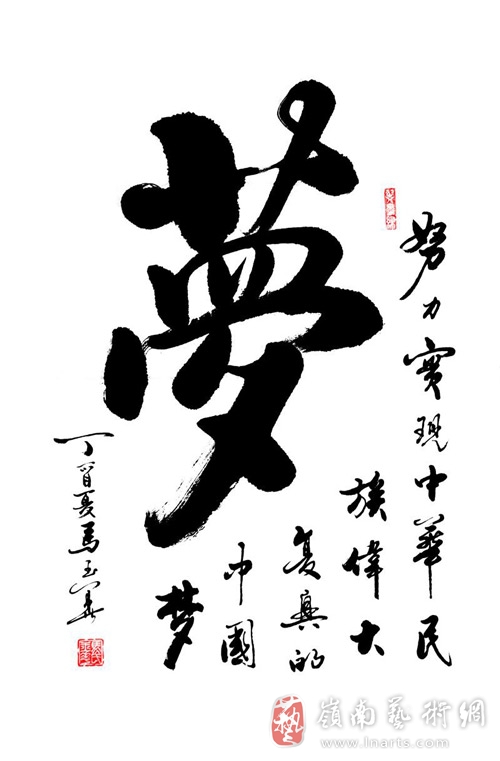 夢
努力實現中華民
族偉大
复興的
中國
梦
丁酉夏馬玉春
藝
嶺南藝術網
www.lnarts.com